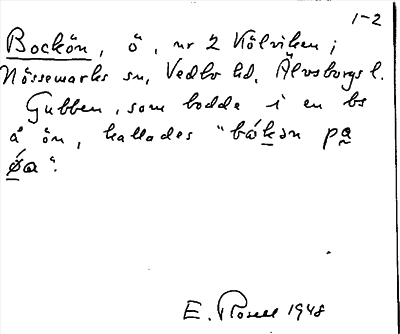 1-2
Bockön, ö, nr 2 Kölviken i
Nössemarks sn, Vedbo hd, Älvsborgs l.
Gubben, som bodde i en bs
å ön, kallades "bókən pa
øa".
E. Rosell 1948